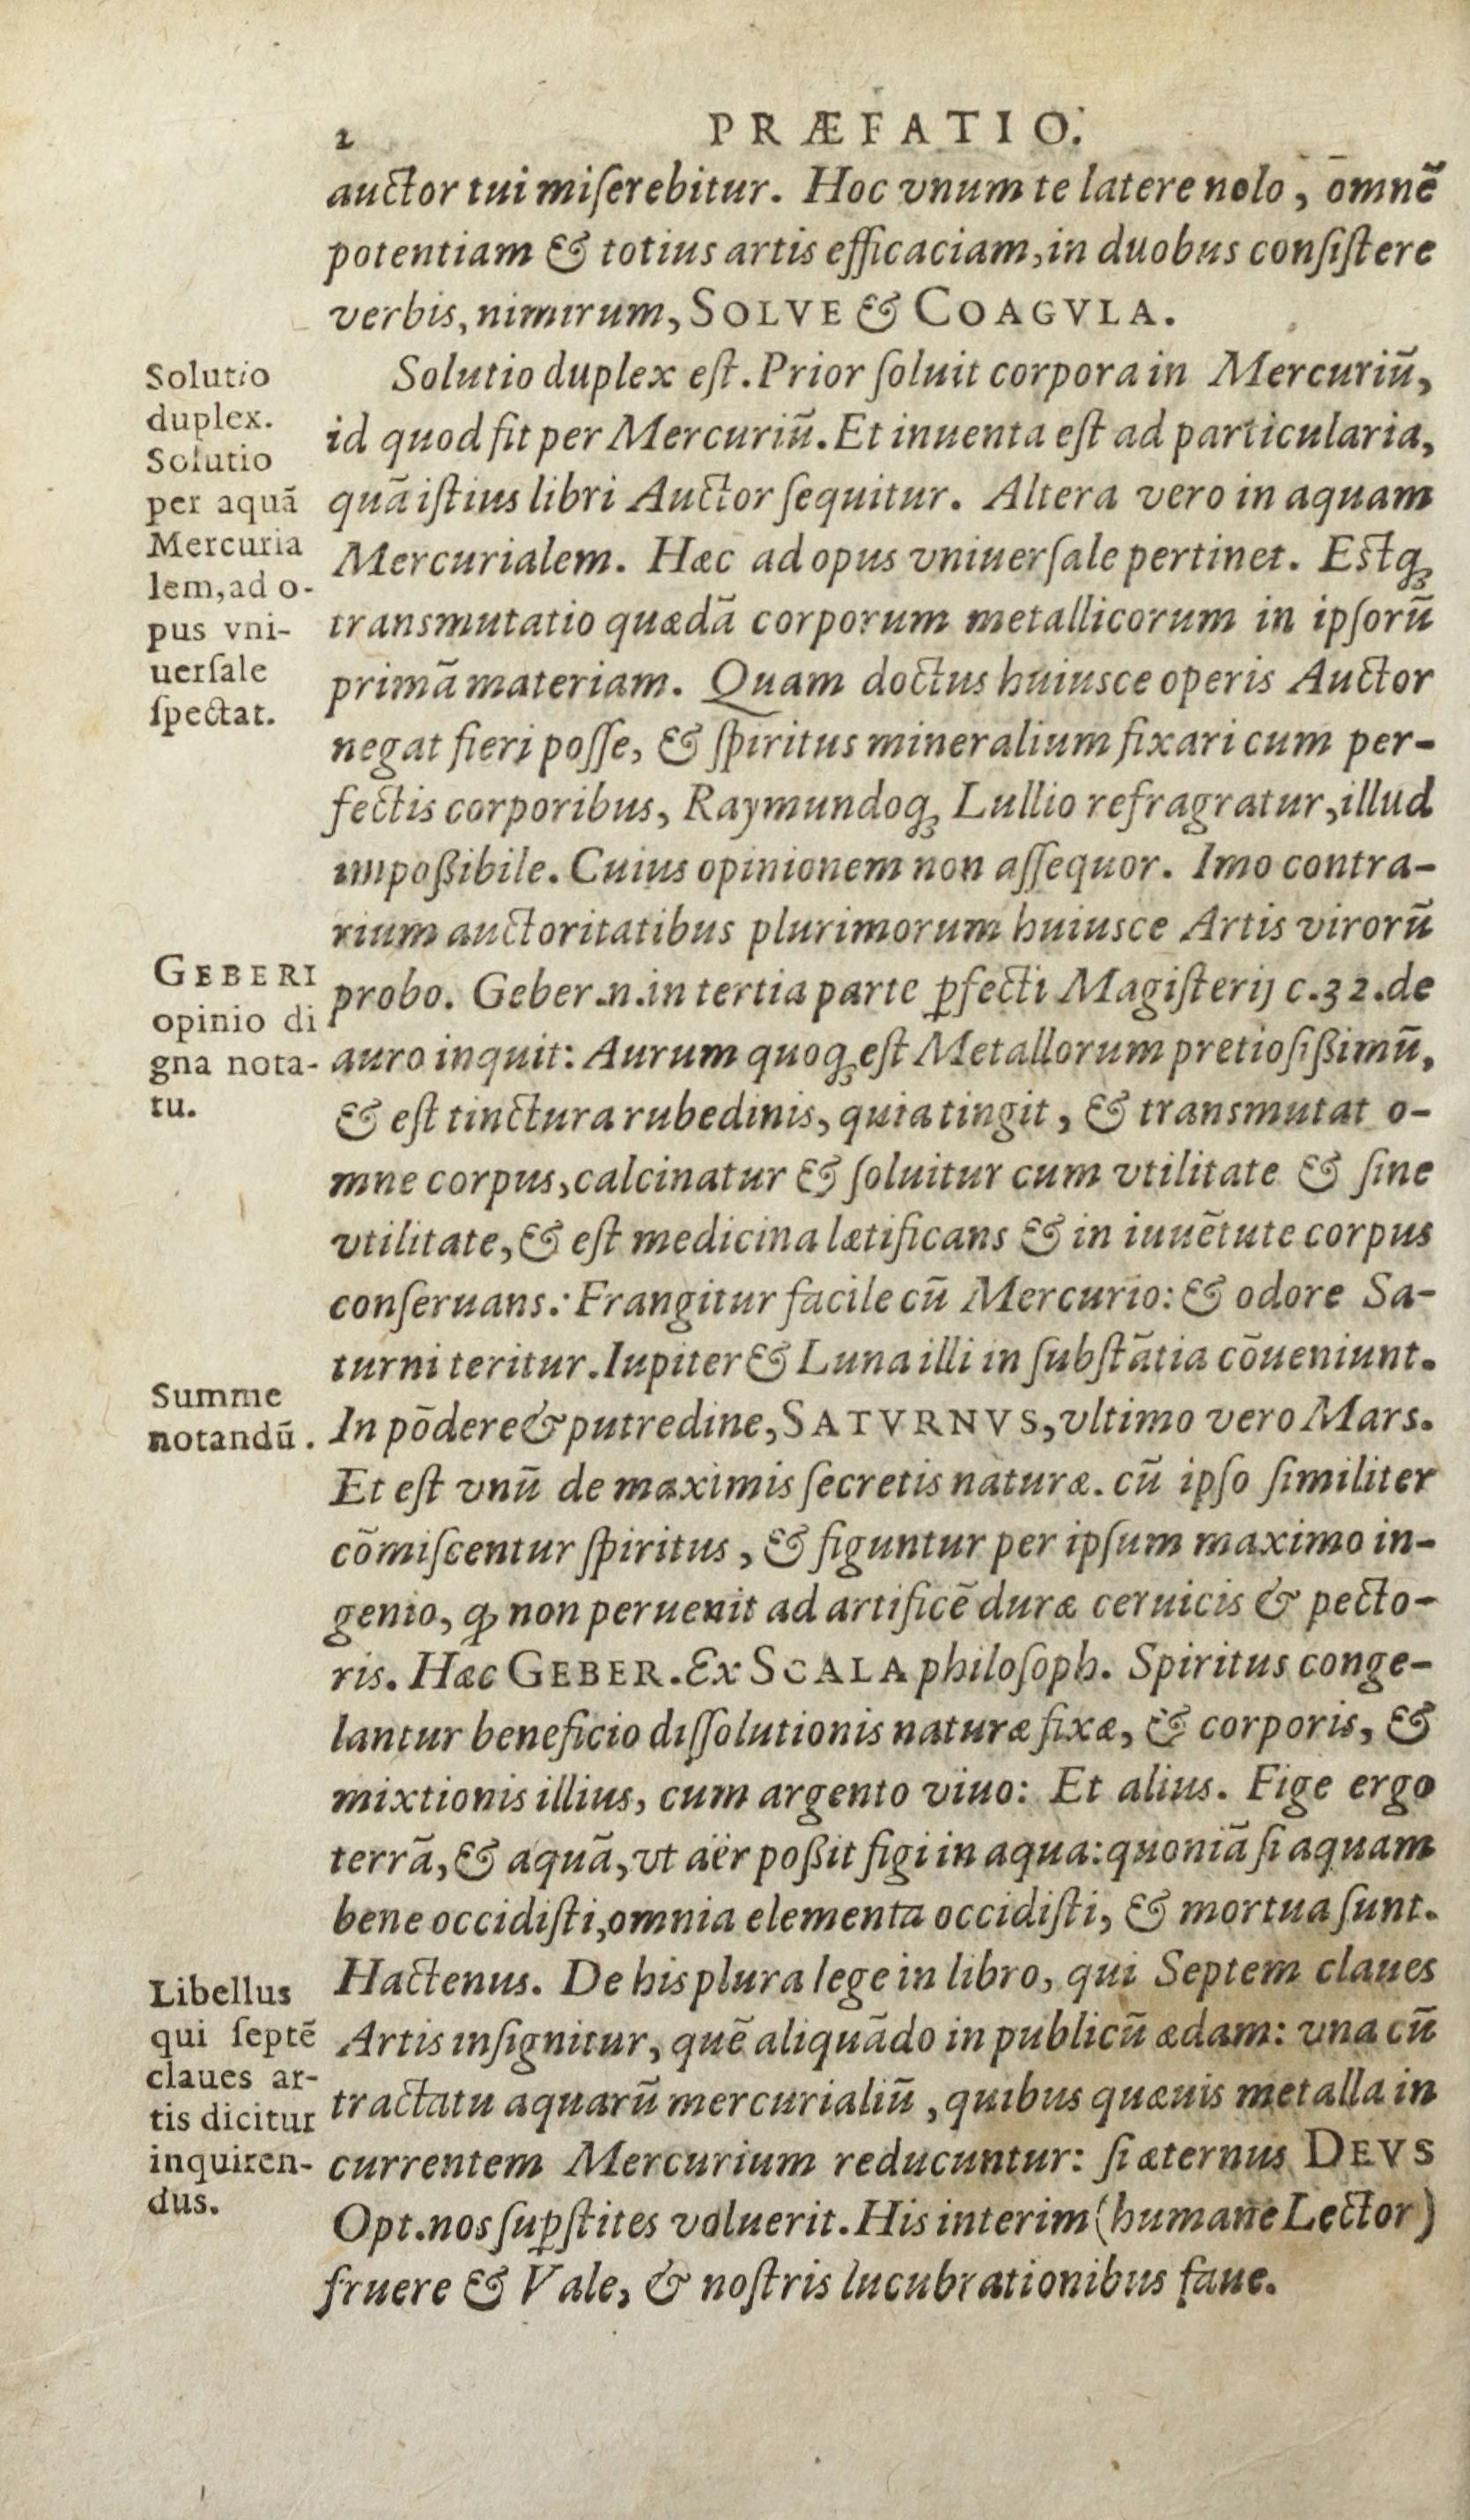 2
PRÆFATIO.
auctor tui miſerebitur. Hoc vnum te latere nolo, omnẽ
potentiam & totius artis efficaciam, in duobus conſiſtere
verbis, nimirum, SOLVE & COAGVLA.
Solutio duplex eſt. Prior ſoluit corpora in Mercuriũ,
id quod fit per Mercuriũ. Et inuenta eſt ad particularia,
quã iſtius libri Auctor ſequitur. Altera vero in aquam
Mercurialem. Hæc ad opus vniuerſale pertinet. Eſtq;
transmutatio quædã corporum metallicorum in ipſorũ
primã materiam. Quam doctus huiusce operis Auctor
negat fieri poſſe, & ſpiritus mineralium fixari cum per-
fectis corporibus, Raymundoq; Lullio refragratur, illud
impoßibile. Cuius opinionem non aſſequor. Imo contra-
rium auctoritatibus plurimorum huiusce Artis virorũ
probo. Geber .n. in tertia parte ꝑfecti Magiſterij c. 32. de
auro inquit: Aurum quoq; eſt Metallorum pretioſißimũ,
& eſt tinctura rubedinis, quia tingit, & transmutat o-
mne corpus, calcinatur & ſoluitur cum vtilitate & ſine
vtilitate, & eſt medicina lætificans & in iuuẽtute corpus
conſeruans: Frangitur facile cũ Mercurio: & odore Sa-
turni teritur. Iupiter & Luna illi in ſubſtãtia cõueniunt.
In põdere & putredine, SATVRNVS, vltimo vero Mars.
Et eſt vnũ de maximis ſecretis naturæ. cũ ipſo ſimiliter
cõmiſcentur ſpiritus, & figuntur per ipſum maximo in-
genio, ꝙ non peruenit ad artificẽ duræ ceruicis & pecto-
ris. Hæc GEBER. Ex SCALA philoſoph. Spiritus conge-
lantur beneficio diſſolutionis naturæ fixæ, & corporis, &
mixtionis illius, cum argento viuo: Et alius. Fige ergo
terrã, & aquã, vt aër poßit figi in aqua: quoniã ſi aquam
bene occidiſti, omnia elementa occidiſti, & mortua ſunt.
Hactenus. De his plura lege in libro, qui Septem claues
Artis inſignitur, quẽ aliquãdo in publicũ ædam: vna cũ
tractatu aquarũ mercurialiũ, quibus quæuis metalla in
currentem Mercurium reducuntur: ſi æternus DEVS
Opt. nos ſuꝑſtites voluerit. His interim (humane Lector)
fruere & Vale, & noſtris lucubrationibus faue.
Solutio
duplex.
Solutio
per aquã
Mercuria
lem, ad o-
pus vni-
uerſale
ſpectat.
GEBERI
opinio di
gna nota-
tu.
Summe
notandũ.
Libellus
qui ſeptẽ
claues ar-
tis dicitur
inquiren-
dus.